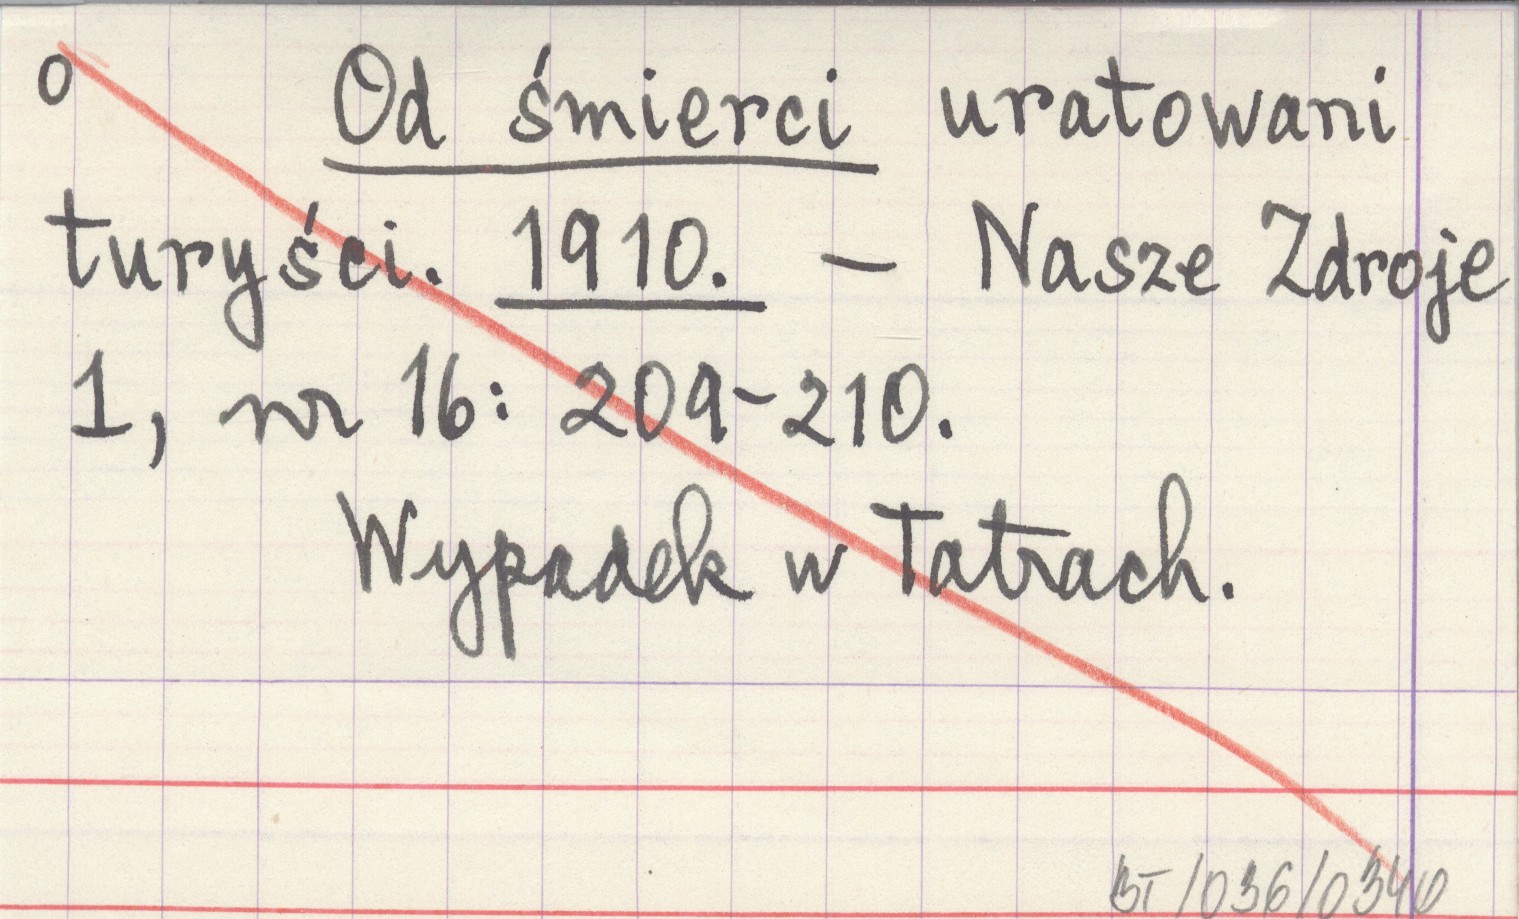 o Od śmierci uratowani
turyści. 1910. – Nasze Zdroje
1, nr 16: 209-210.
Wypadek w Tatrach.
BT/036/0340